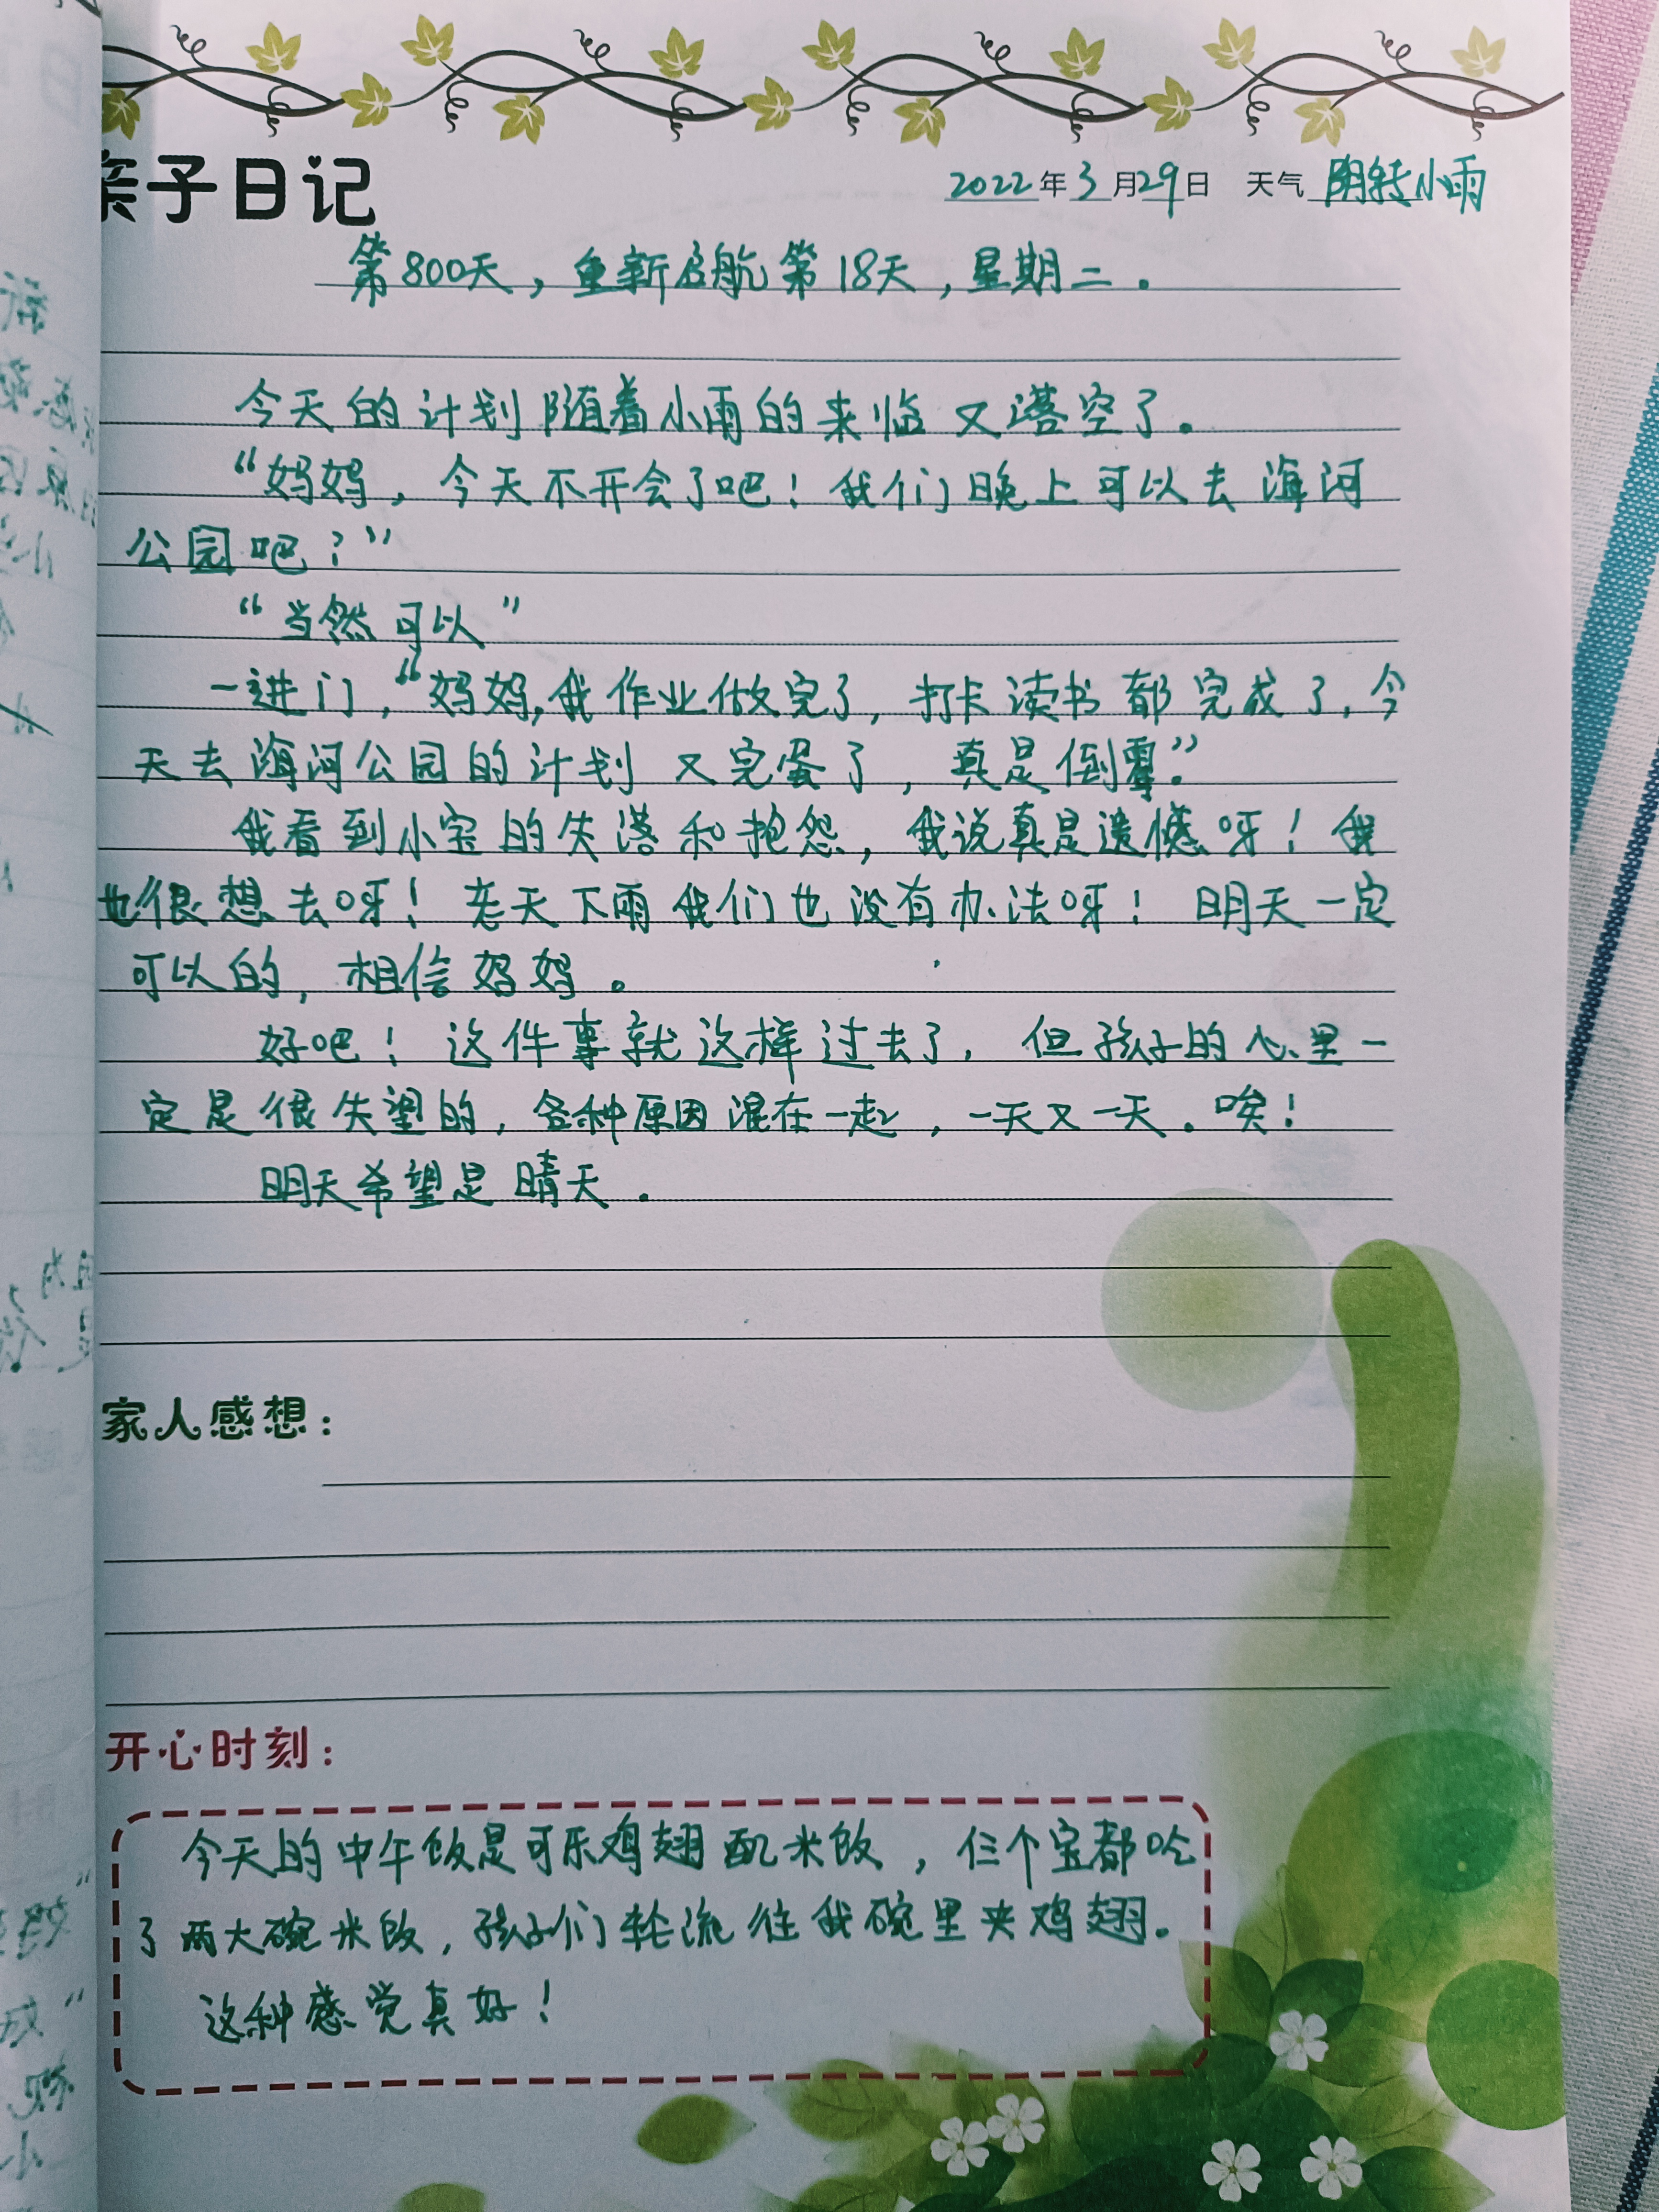 亲子日记
2022年3月29日 天气 阴转小雨
第800天，重新启航第18天，星期二。
今天的计划随着小雨的来临又落空了。
“妈妈，今天不开会了吧！我们晚上可以去海河
公园吧？”
“当然可以”
一进门，“妈妈，我作业做完了，打卡读书都完成了，今
天去海河公园的计划又完蛋了，真是倒霉。”
我看到小宝的失落和抱怨，我说真是遗憾呀！我
也很想去呀！老天下雨我们也没有办法呀！明天一定
可以的，相信妈妈。
好吧！这件事就这样过去了，但孩子的心里一
定是很失望的，各种原因混在一起，一天又一天。唉！
明天希望是晴天。
家人感想：
开心时刻：
今天的中午饭是可乐鸡翅配米饭，仨个宝都吃
了两大碗米饭，孩子们轮流往我碗里夹鸡翅。
这种感觉真好！